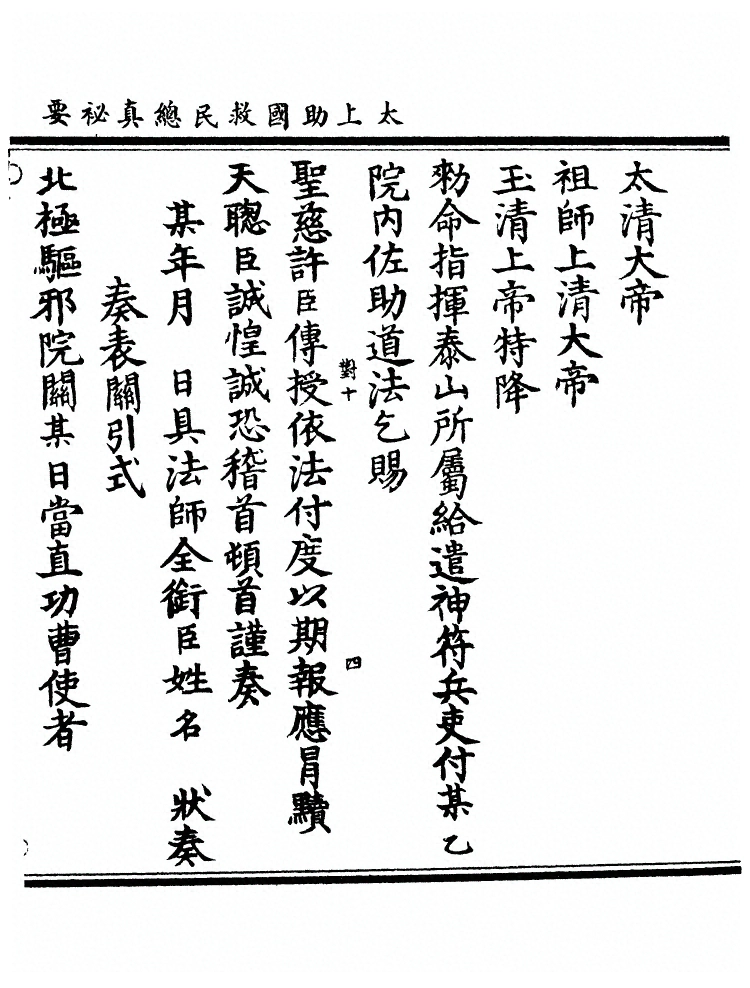 太上助國救民總真祕要
太清大帝
祖師上清大帝
玉清上帝特降
勑命指揮泰山所屬給遣神符兵吏付某乙
院内佐助道法乞賜
對十
四
聖慈許臣傳授依法付度以期報應冐黷
天聰臣誠惶誠恐稽首頓首謹奏
某年月　日具法師全銜臣姓名　狀奏
奏表關引式
北極驅邪院關某日當直功曹使者